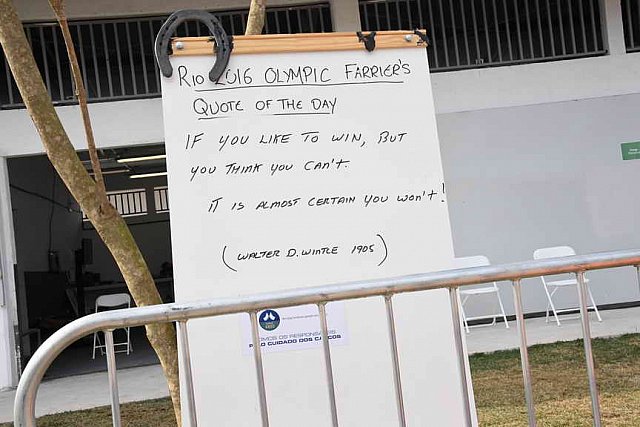 RIO 2016 OLYMPIC FARRIER'S
QUOTE OF THE DAY
IF YOU LIKE TO WIN, BUT
YOU THINK YOU CAN'T.
IT IS ALMOST CERTAIN YOU WON'T!
(WALTER D. WINTLE 1905)
SOMOS OS RESPONSÁVEIS
PELO CUIDADO DOS CASCOS